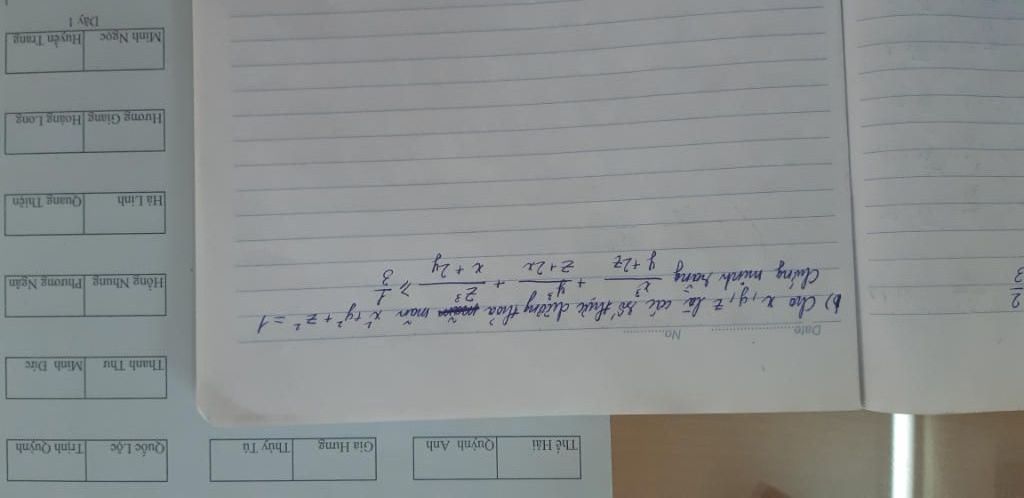 Date
No.
b) Cho x, y, z là các số thực dương thỏa mãn x² + y² + z² = 1
Chứng minh rằng x³/(y + 2z) + y³/(z + 2x) + z³/(x + 2y) ≥ 1/3
2
3
Thế Hải Quỳnh Anh
Gia Hưng Thúy Tú
Quốc Lộc Trịnh Quỳnh
Thanh Thư Minh Đức
Hồng Nhung Phương Ngân
Hà Linh Quang Thiện
Hương Giang Hoàng Long
Minh Ngọc Huyền Trang
Dãy 1